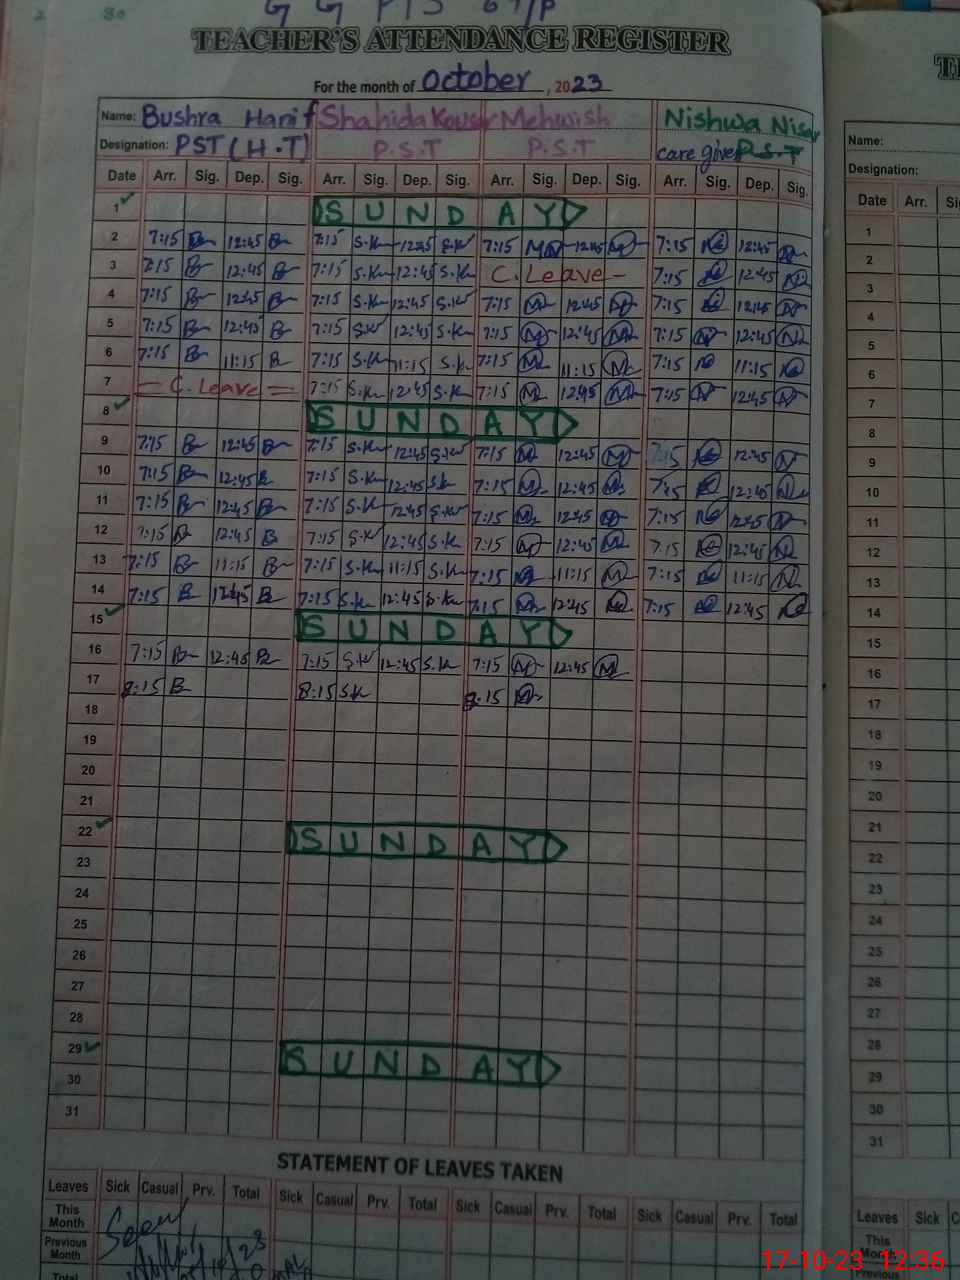 TEACHER'S ATTENDANCE REGISTER
For the month of October, 2023
Name: Bushra Hanif Shahida Kousar Mehwish Nishwa Nisar
Designation: PST (H.T) P.S.T P.S.T care giver P.S.T
Date Arr. Sig. Dep. Sig. Arr. Sig. Dep. Sig. Arr. Sig. Dep. Sig. Arr. Sig. Dep. Sig.
1 SUNDAY
2 7:15 B 12:45 B 7:15 S.K 12:45 S.K 7:15 M 12:45 M 7:15 N 12:45 N
3 7:15 B 12:45 B 7:15 S.K 12:45 S.K C. Leave 7:15 N 12:45 N
4 7:15 B 12:45 B 7:15 S.K 12:45 S.K 7:15 M 12:45 M 7:15 N 12:45 N
5 7:15 B 12:45 B 7:15 S.K 12:45 S.K 7:15 M 12:45 M 7:15 N 12:45 N
6 7:15 B 11:15 B 7:15 S.K 11:15 S.K 7:15 M 11:15 M 7:15 N 11:15 N
7 C. Leave 7:15 S.K 12:45 S.K 7:15 M 12:45 M 7:15 N 12:45 N
8 SUNDAY
9 7:15 B 12:45 B 7:15 S.K 12:45 S.K 7:15 M 12:45 M 7:15 N 12:45 N
10 7:15 B 12:45 B 7:15 S.K 12:45 S.K 7:15 M 12:45 M 7:15 N 12:45 N
11 7:15 B 12:45 B 7:15 S.K 12:45 S.K 7:15 M 12:45 M 7:15 N 12:45 N
12 7:15 B 12:45 B 7:15 S.K 12:45 S.K 7:15 M 12:45 M 7:15 N 12:45 N
13 7:15 B 11:15 B 7:15 S.K 11:15 S.K 7:15 M 11:15 M 7:15 N 11:15 N
14 7:15 B 12:45 B 7:15 S.K 12:45 S.K 7:15 M 12:45 M 7:15 N 12:45 N
15 SUNDAY
16 7:15 B 12:45 B 7:15 S.K 12:45 S.K 7:15 M 12:45 M
17 8:15 B 8:15 S.K 8:15 M
18
19
20
21
22 SUNDAY
23
24
25
26
27
28
29 SUNDAY
30
31
STATEMENT OF LEAVES TAKEN
Leaves Sick Casual Prv. Total Sick Casual Prv. Total Sick Casual Prv. Total Sick Casual Prv. Total
This Month
Previous Month
Total
Name:
Designation:
Date Arr.
1
2
3
4
5
6
7
8
9
10
11
12
13
14
15
16
17
18
19
20
21
22
23
24
25
26
27
28
29
30
31
Leaves Sick
This Month
Previous Month
17-10-23 12:36